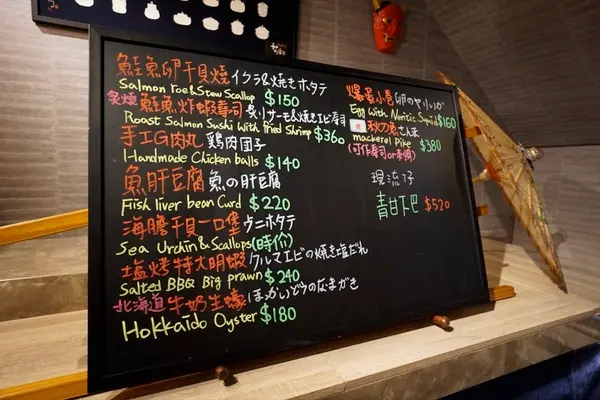 鮭魚卵干貝燒 イクラ&焼きホタテ
Salmon roe&Stew Scallop $150
炙燒鮭魚炸蝦壽司 炙りサーモ&焼きエビ寿司
Roast Salmon Sushi With fried Shrimp $360
手工G肉丸 鶏肉団子
Handmade Chicken balls $140
魚肝豆腐 魚の肝豆腐
Fish liver bean Curd $220
海膽干貝一口堡 ウニホタテ
Sea Urchin & Scallops (時价)
塩烤特大明蝦 クルマエビの焼き塩だれ
Salted BBQ Big prawn $240
北海道牛奶生蠔 ほっかいどうのなまがき
Hokkaido Oyster $180
爆蛋小卷 卵のやりいか
Egg With Neritic Squid $160
秋刀魚 さんま
mackerel Pike $380
現流仔
青甘下巴 $520